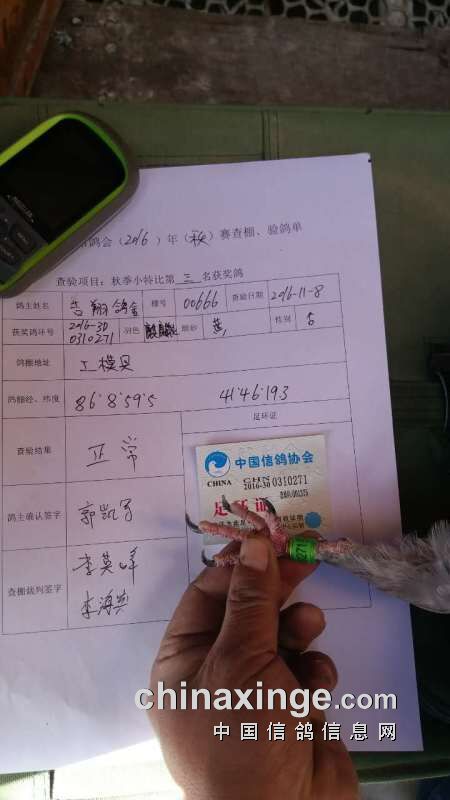 鸽会(2016)年(秋)赛查棚、验鸽单
查验项目:秋季小特比第 三 名获奖鸽
鸽主姓名 吉翔鸽舍 棚号 00666 查验日期 2016-11-8
获奖鸽环号 2016-30 0310271 羽色 眼砂 黄 性别
鸽棚地址 工模具
鸽棚经、纬度 86°8′59.5 41°46′19.3
查验结果 正常 足环证
鸽主确认签字
查棚裁判签字 李英峰
中国信鸽协会
CHINA CHN
2016-30 0310271
足环证
271
chinaxinge.com
中国信鸽信息网